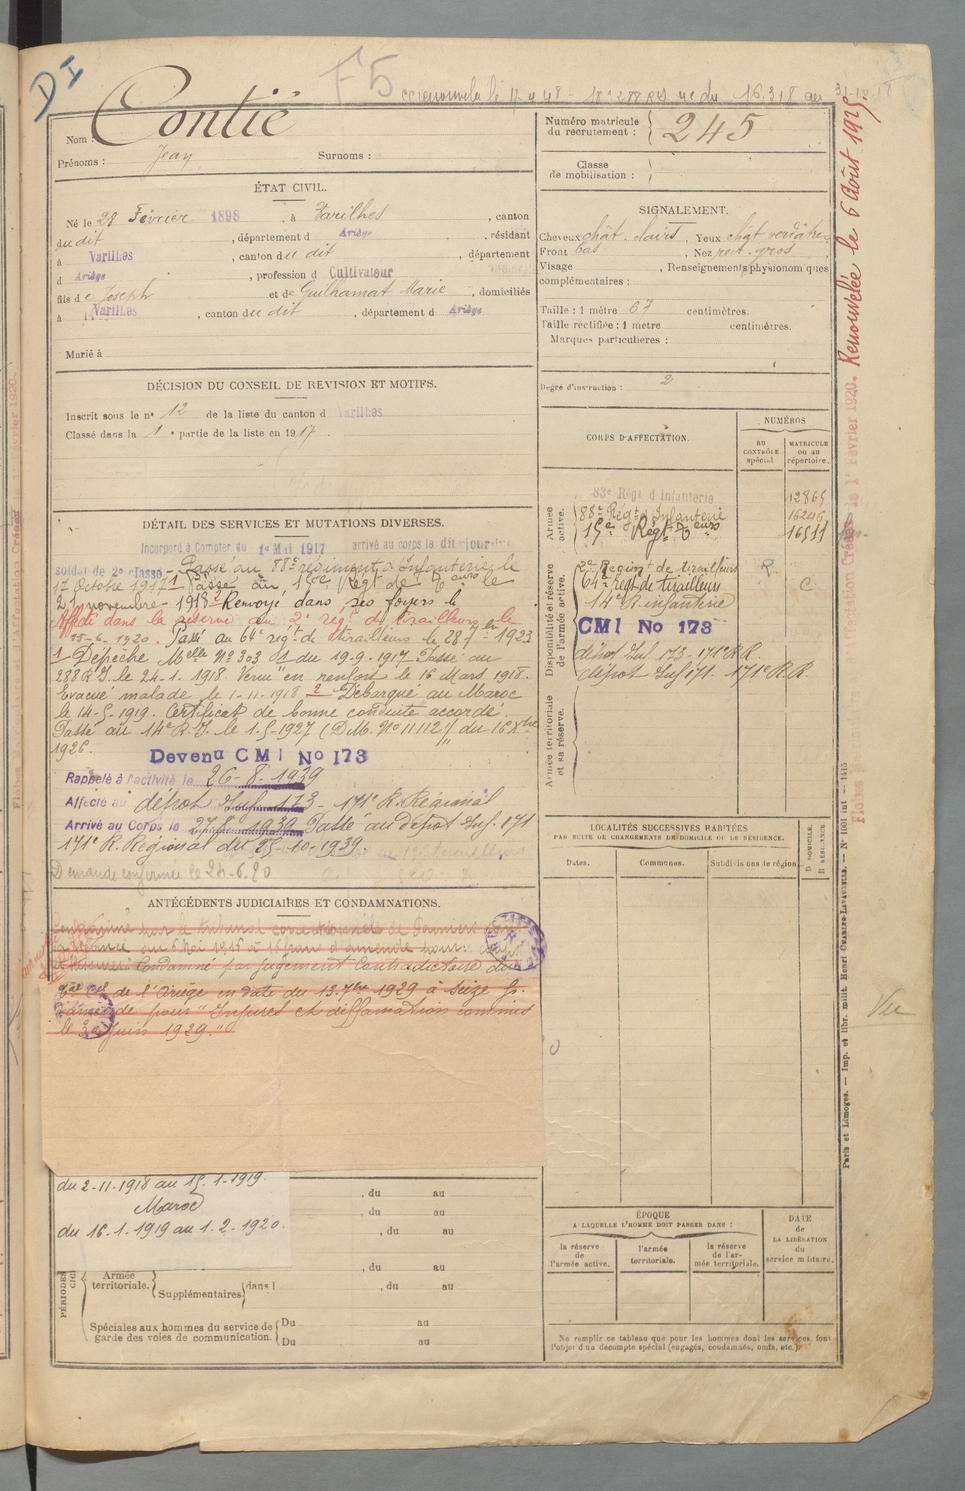 DI
F5
Nom : Contié
Prénoms : Jean Surnoms :
Numéro matricule du recrutement : 245
Classe de mobilisation :
ÉTAT CIVIL.
Né le 28 Février 1898, à Varilhes, canton
du dit, département d Ariège, résidant
à Varilhes, canton du dit, département
d Ariège, profession d Cultivateur
fils de Joseph et de Guilhamat Marie, domiciliés
à Varilhes, canton du dit, département d Ariège
Marié à
SIGNALEMENT.
Cheveux chât. clairs, Yeux chât verdâtre
Front bas, Nez rect. gros
Visage , Renseignements physionomiques
complémentaires :
Taille : 1 mètre 67 centimètres.
Taille rectifiée : 1 mètre centimètres.
Marques particulières :
Degré d'instruction : 2
DÉCISION DU CONSEIL DE REVISION ET MOTIFS.
Inscrit sous le n° 12 de la liste du canton d Varilhes
Classé dans la 1e partie de la liste en 1917
CORPS D'AFFECTATION.
NUMÉROS
AU CONTRÔLE spécial
MATRICULE OU AU répertoire.
Armée active.
83e Régt d'Infanterie 12865
88e Régt d'Infanterie 16246
15e Régt 16511
Disponibilité et réserve de l'armée active.
2e Régimt de tirailleurs R.
64e Régt de tirailleurs C.
14e R. infanterie
CMI No 173
dépôt Inf 173 - 171e R.R.
dépôt Inf 171 171e R.R.
Armée territoriale et sa réserve.
DÉTAIL DES SERVICES ET MUTATIONS DIVERSES.
Incorporé à Compter du 1er Mai 1917 arrivé au corps le dit jour
soldat de 2e classe - Passé au 88e régiment d'Infanterie le
17 Octobre 1917 1 Passé au 15e Régt de le
21 novembre 1918 2 Renvoyé dans ses foyers le
Affecté dans la réserve au 2e régt de tirailleurs
15-6-1920. Passé au 64e régt de tirailleurs le 28 7bre 1923
1 Dépêche Mlle N° 303 du 19-9-1917 Passé au
288 R.I. le 24-1-1918 Venu en renfort le 16 Mars 1918.
Evacué malade le 1-11-1918 2 Débarqué au Maroc
le 14-5-1919. Certificat de bonne conduite accordé.
Passé au 14e R.I. le 1-5-1927 (D.M. N° 11112 du 16 Xbre
1926
Devenu CMI No 173
Rappelé à l'activité le 26-8-1939
Affecté au dépôt Inf 173 - 171e R. Régional
Arrivé au Corps le 27-8-1939 Passé au dépôt Inf. 171
171e R. Régional du 25-10-1939.
Demande confirmée le 24-6-20
LOCALITÉS SUCCESSIVES HABITÉES
PAR SUITE DE CHANGEMENTS DE DOMICILE OU DE RÉSIDENCE.
Dates. Communes. Subdivisions de région. D DOMICILE. R RÉSIDENCE
ANTÉCÉDENTS JUDICIAIRES ET CONDAMNATIONS.
Condamné par le tribunal correctionnel de Pamiers
du 6 Mai 1915 à 16 francs d'amende pour
Condamné par jugement contradictoire du
de l'Ariège en date du 13 7bre 1929 à seize fr.
d'amende pour "Injures et diffamation commis
le 3 Juin 1929."
du 2-11-1918 au 15-1-1919.
Maroc
du 16-1-1919 au 1-2-1920.
, du au
, du au
, du au
, du au
PÉRIODES
Armée territoriale. Supplémentaires dans l , du au
Spéciales aux hommes du service de garde des voies de communication. Du au
Du au
ÉPOQUE
A LAQUELLE L'HOMME DOIT PASSER DANS :
la réserve de l'armée active.
l'armée territoriale.
la réserve de l'armée territoriale.
DATE de LA LIBÉRATION du service militaire.
Ne remplir ce tableau que pour les hommes dont les services font
l'objet d'un décompte spécial (engagés, condamnés, omis, etc.).
Renouvelée le 6 Août 1925
Paris et Limoges. — Imp. et libr. milit. Henri CHARLES-LAVAUZELLE. — N° 1001 int — 1415
Vu